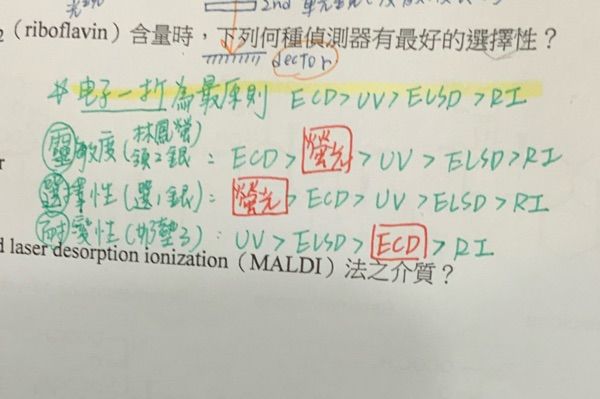 2nd
2 (riboflavin) 含量時，下列何種偵測器有最好的選擇性？
dector
电子一折為最原則 ECD > UV > ELSD > RI
林鳳營
靈敏度(領2銀: ECD > 螢光 > UV > ELSD > RI
選擇性(選1銀): 螢光 > ECD > UV > ELSD > RI
耐變性(那墊3): UV > ELSD > ECD > RI
d laser desorption ionization (MALDI) 法之介質？